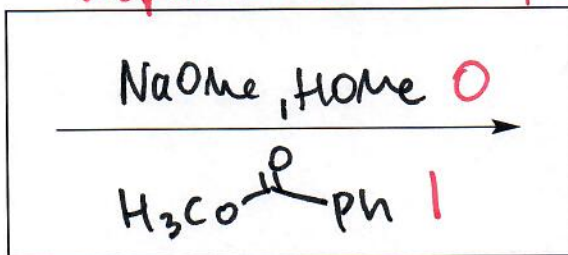 NaOMe, HOMe 0
O
H3CO Ph 1